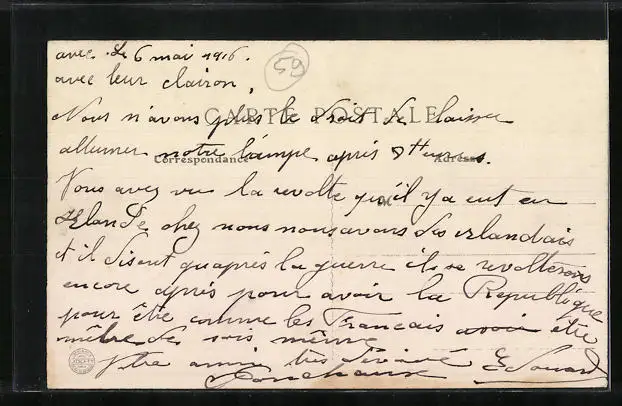 avec. Le 6 mai 1916.
59
avec leur clairon,
CARTE POSTALE
Nous n'avons plus le droit de laisser
allumer notre lampe après 9 Heures.
Correspondance
Adresse
Vous avez vu la revolte qu'il y a eut en
Irlande, chez nous nous avons des irlandais
et il disent qu'après la guerre ils se revolterons
encore après pour avoir la Republique
pour être comme les Francais avoir être
mètre de sois même
Votre ami très dévoué Edouard